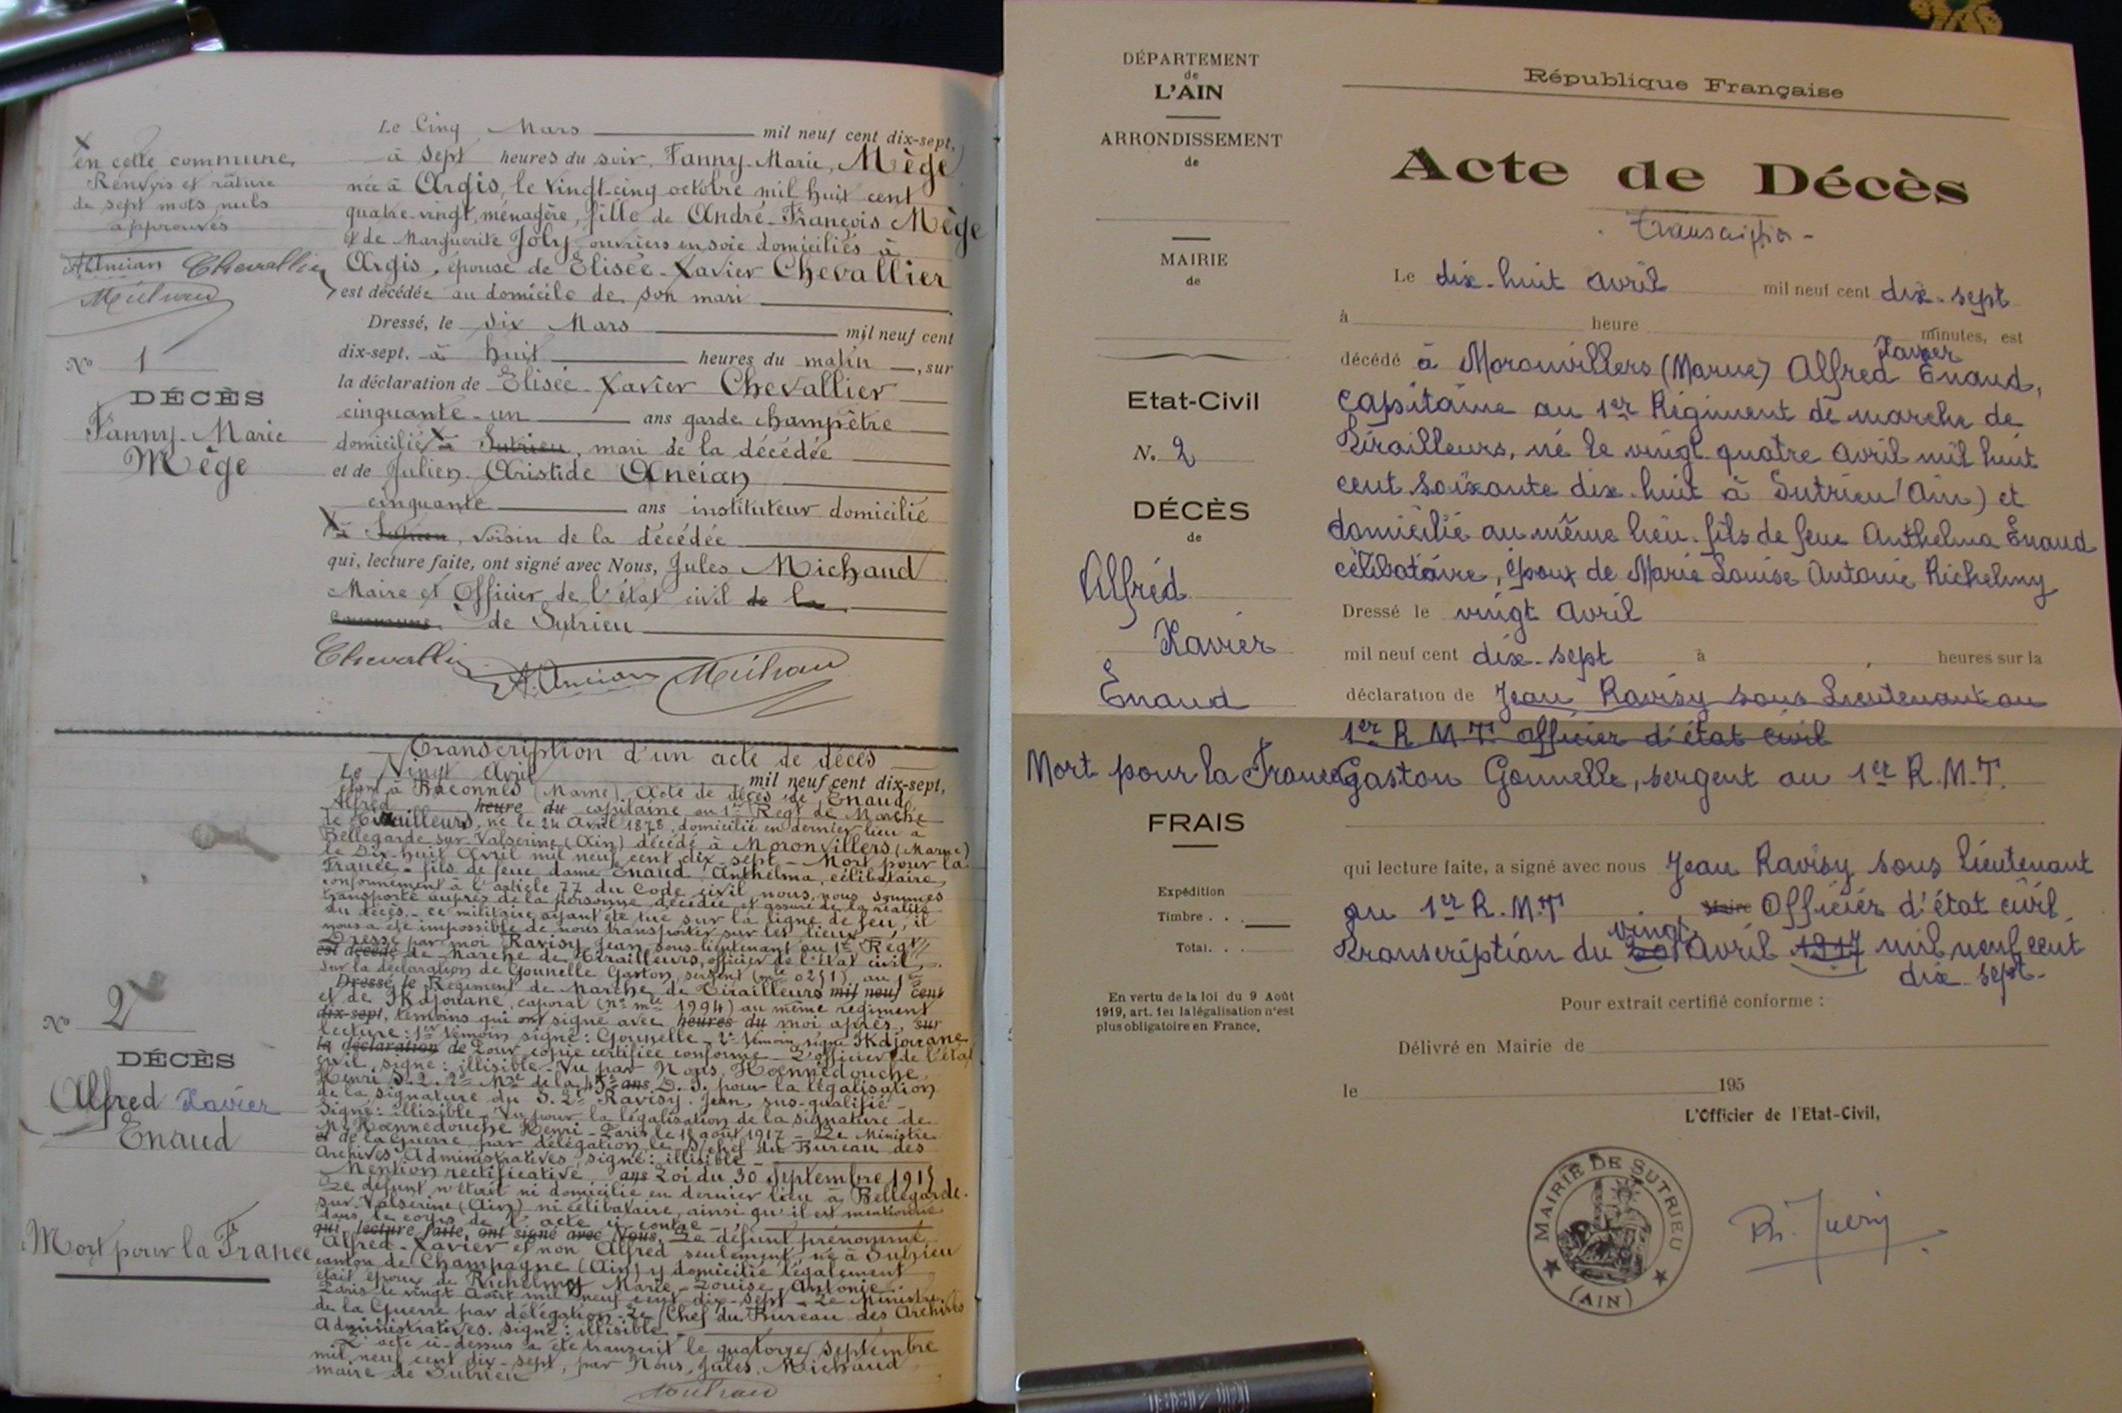 X en cette commune,
Renvois et râture
de sept mots nuls
approuvés
AAncian Chevallier
Michaud
No 1
DÉCÈS
Fanny-Marie
Mège
Le Cinq Mars mil neuf cent dix-sept,
à sept heures du soir, Fanny-Marie, Mège
née à Argis, le vingt-cinq octobre mil huit cent
quatre-vingt, ménagère, fille de André-François Mège
et de Marguerite Joly, ouvriers en soie domiciliés à
Argis, épouse de Elisée-Xavier Chevallier
est décédée au domicile de son mari
Dressé, le six Mars mil neuf cent
dix-sept, à huit heures du matin, sur
la déclaration de Elisée-Xavier Chevallier
cinquante-un ans garde champêtre
domicilié X à Sutrieu, mari de la décédée
et de Julien Aristide Ancian
cinquante ans instituteur domicilié
X à Sutrieu, voisin de la décédée
qui, lecture faite, ont signé avec Nous, Jules Michaud
Maire et Officier de l'état civil de la
commune de Sutrieu
Chevallier AAncian Michaud
No 2
DÉCÈS
Alfred Xavier
Enaud
Mort pour la France
Transcription d'un acte de décès
Le Vingt Avril mil neuf cent dix-sept,
étant à Baconnes (Marne) Acte de décès de Enaud
Alfred heure du capitaine au 1er Régt de Marche
de Tirailleurs, né le 24 Avril 1878, domicilié en dernier lieu à
Bellegarde-sur-Valserine (Ain) décédé à Moronvillers (Marne)
le Dix-huit Avril mil neuf cent dix-sept - Mort pour la
France - fils de feue dame Enaud Anthelma, célibataire,
conformément à l'article 77 du Code civil, nous, nous sommes
transporté auprès de la personne décédée et assuré de la réalité
du décès. - ce militaire ayant été tué sur la ligne de feu, il
nous a été impossible de nous transporter sur les lieux
Dressé par moi Ravisy Jean, sous-lieutenant au 1er Régt
est décédé de Marche de Tirailleurs, officier de l'état civil,
sur la déclaration de Gounelle Gaston, sergent (mle 0251) au 1er
Dressé le Régiment de Marche de Tirailleurs mil neuf cent
et de Ikdjouane, caporal (no mle 1994) au même régiment
dix-sept, témoins qui ont signé avec heures du moi après, sur
lecture: 1er témoin signé: Gounelle - 2e témoin signé Ikdjouane
la déclaration de Pour copie certifiée conforme - L'officier de l'état
civil, signé: illisible - Vu par Nous, Hoennedouche
Henri S. I. 2e Mre de la 45e ans D. I. pour la légalisation
de la signature du S. Lt Ravisy Jean, sus-qualifié -
Signé: illisible - Vu pour la légalisation de la signature de
M. Hoennedouche Henri - Paris le 18 août 1917 - Le Ministre
et de la Guerre par délégation, le S/chef du Bureau des
Archives Administratives, signé: illisible -
Mention rectificative ans Loi du 30 Septembre 1915
Le défunt n'était ni domicilié en dernier lieu à Bellegarde-
sur-Valserine (Ain) ni célibataire, ainsi qu'il est mentionné
dans le corps de l'acte ci-contre -
qui lecture faite, ont signé avec Nous, Le défunt prénommé
Alfred-Xavier et non Alfred seulement, né à Sutrieu
canton de Champagne (Ain) y domicilié légalement
était époux de Richelmy Marie-Louise, Antonie -
Paris le vingt Août mil neuf cent dix-sept - Le Ministre
de la Guerre par délégation - Le S/Chef du Bureau des Archives
Administratives. signé: illisible -
L'acte ci-dessus a été transcrit le quatorze septembre
mil neuf cent dix-sept, par Nous, Jules, Michaud
maire de Sutrieu
Michaud
DÉPARTEMENT
de
L'AIN
ARRONDISSEMENT
de
MAIRIE
de
Etat-Civil
N. 2
DÉCÈS
de
Alfred
Xavier
Enaud
Mort pour la France
FRAIS
Expédition
Timbre . .
Total. . .
En vertu de la loi du 9 Août
1919, art. 1er la légalisation n'est
plus obligatoire en France.
République Française
Acte de Décès
- Transcription -
Le dix-huit avril mil neuf cent dix-sept
à heure minutes, est
décédé à Moronvillers (Marne) Alfred Xavier Enaud,
capitaine au 1er Régiment de marche de
Tirailleurs, né le vingt quatre avril mil huit
cent soixante dix-huit à Sutrieu (Ain) et
domicilié au même lieu. fils de feue Anthelma Enaud
célibataire, époux de Marie Louise Antonie Richelmy
Dressé le vingt avril
mil neuf cent dix-sept à , heures sur la
déclaration de Jean Ravisy sous Lieutenant au
1er R M T. officier d'état civil
Gaston Gounelle, sergent au 1er R.M.T.
qui lecture faite, a signé avec nous Jean Ravisy sous Lieutenant
au 1er R.M.T Maire Officier d'état civil
Transcription du 20 vingt Avril 1917 mil neuf cent
dix-sept-
Pour extrait certifié conforme :
Délivré en Mairie de
le 195
L'Officier de l'Etat-Civil,
MAIRIE DE SUTRIEU
(AIN)